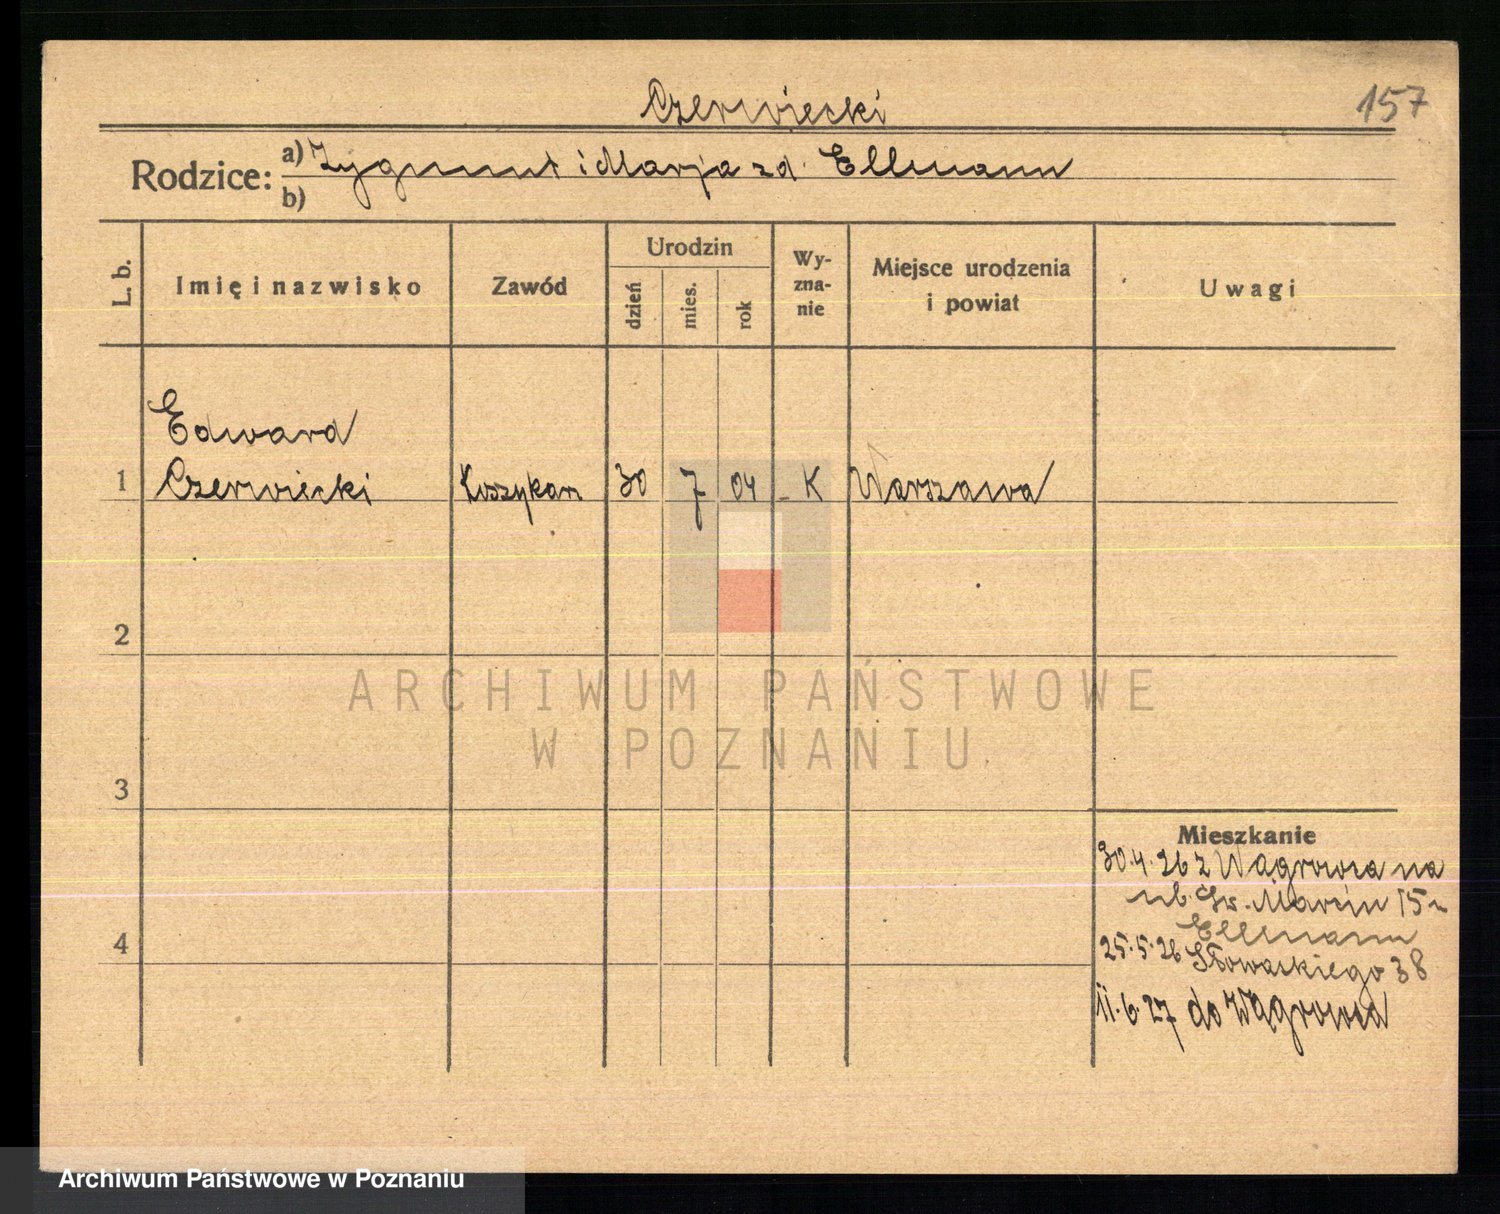 Czerwiecki
157
Rodzice:
a) Zygmunt i Marja zd. Ellmann
b)
L. b.
Imię i nazwisko
Zawód
Urodzin
dzień
mies.
rok
Wy-
zna-
nie
Miejsce urodzenia
i powiat
Uwagi
Edward
1 Czerwiecki Koszykarz 30 7 04 K Warszawa
2
ARCHIWUM PAŃSTWOWE
W POZNANIU
3
Mieszkanie
30.4.26 z Wągrowca na
ul. Św. Marcin 15 u
Ellmann
4
25.5.26 Słowackiego 38
11.6.27 do Wągrowca
Archiwum Państwowe w Poznaniu